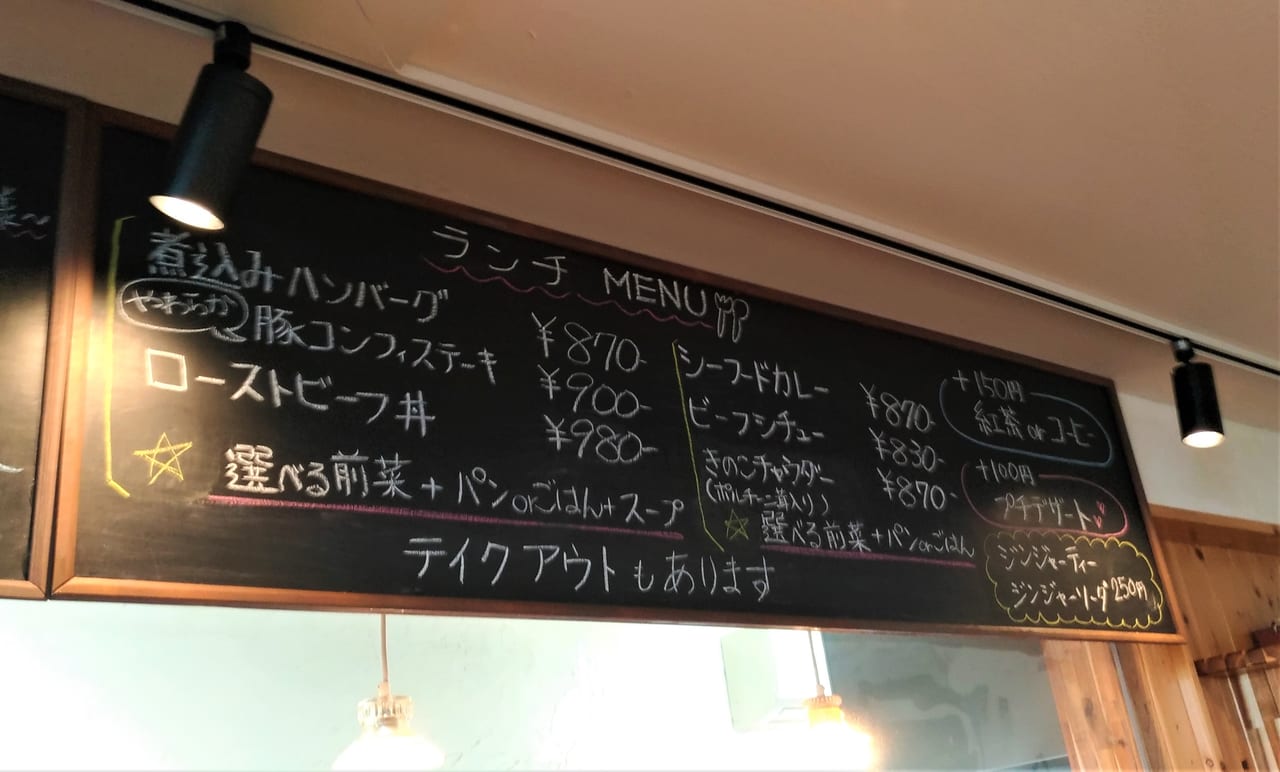 菜～
ランチ MENU
煮込みハンバーグ ¥870-
やわらか 豚コンフィステーキ ¥900-
ローストビーフ丼 ¥980-
選べる前菜+パンorごはん+スープ
シーフードカレー ¥870-
ビーフシチュー ¥830-
きのこチャウダー ¥870-
(ポルチーニ茸入り)
選べる前菜+パンorごはん
テイクアウトもあります
+150円
紅茶orコーヒー
+100円
プチデザート
ジンジャーティー
250円